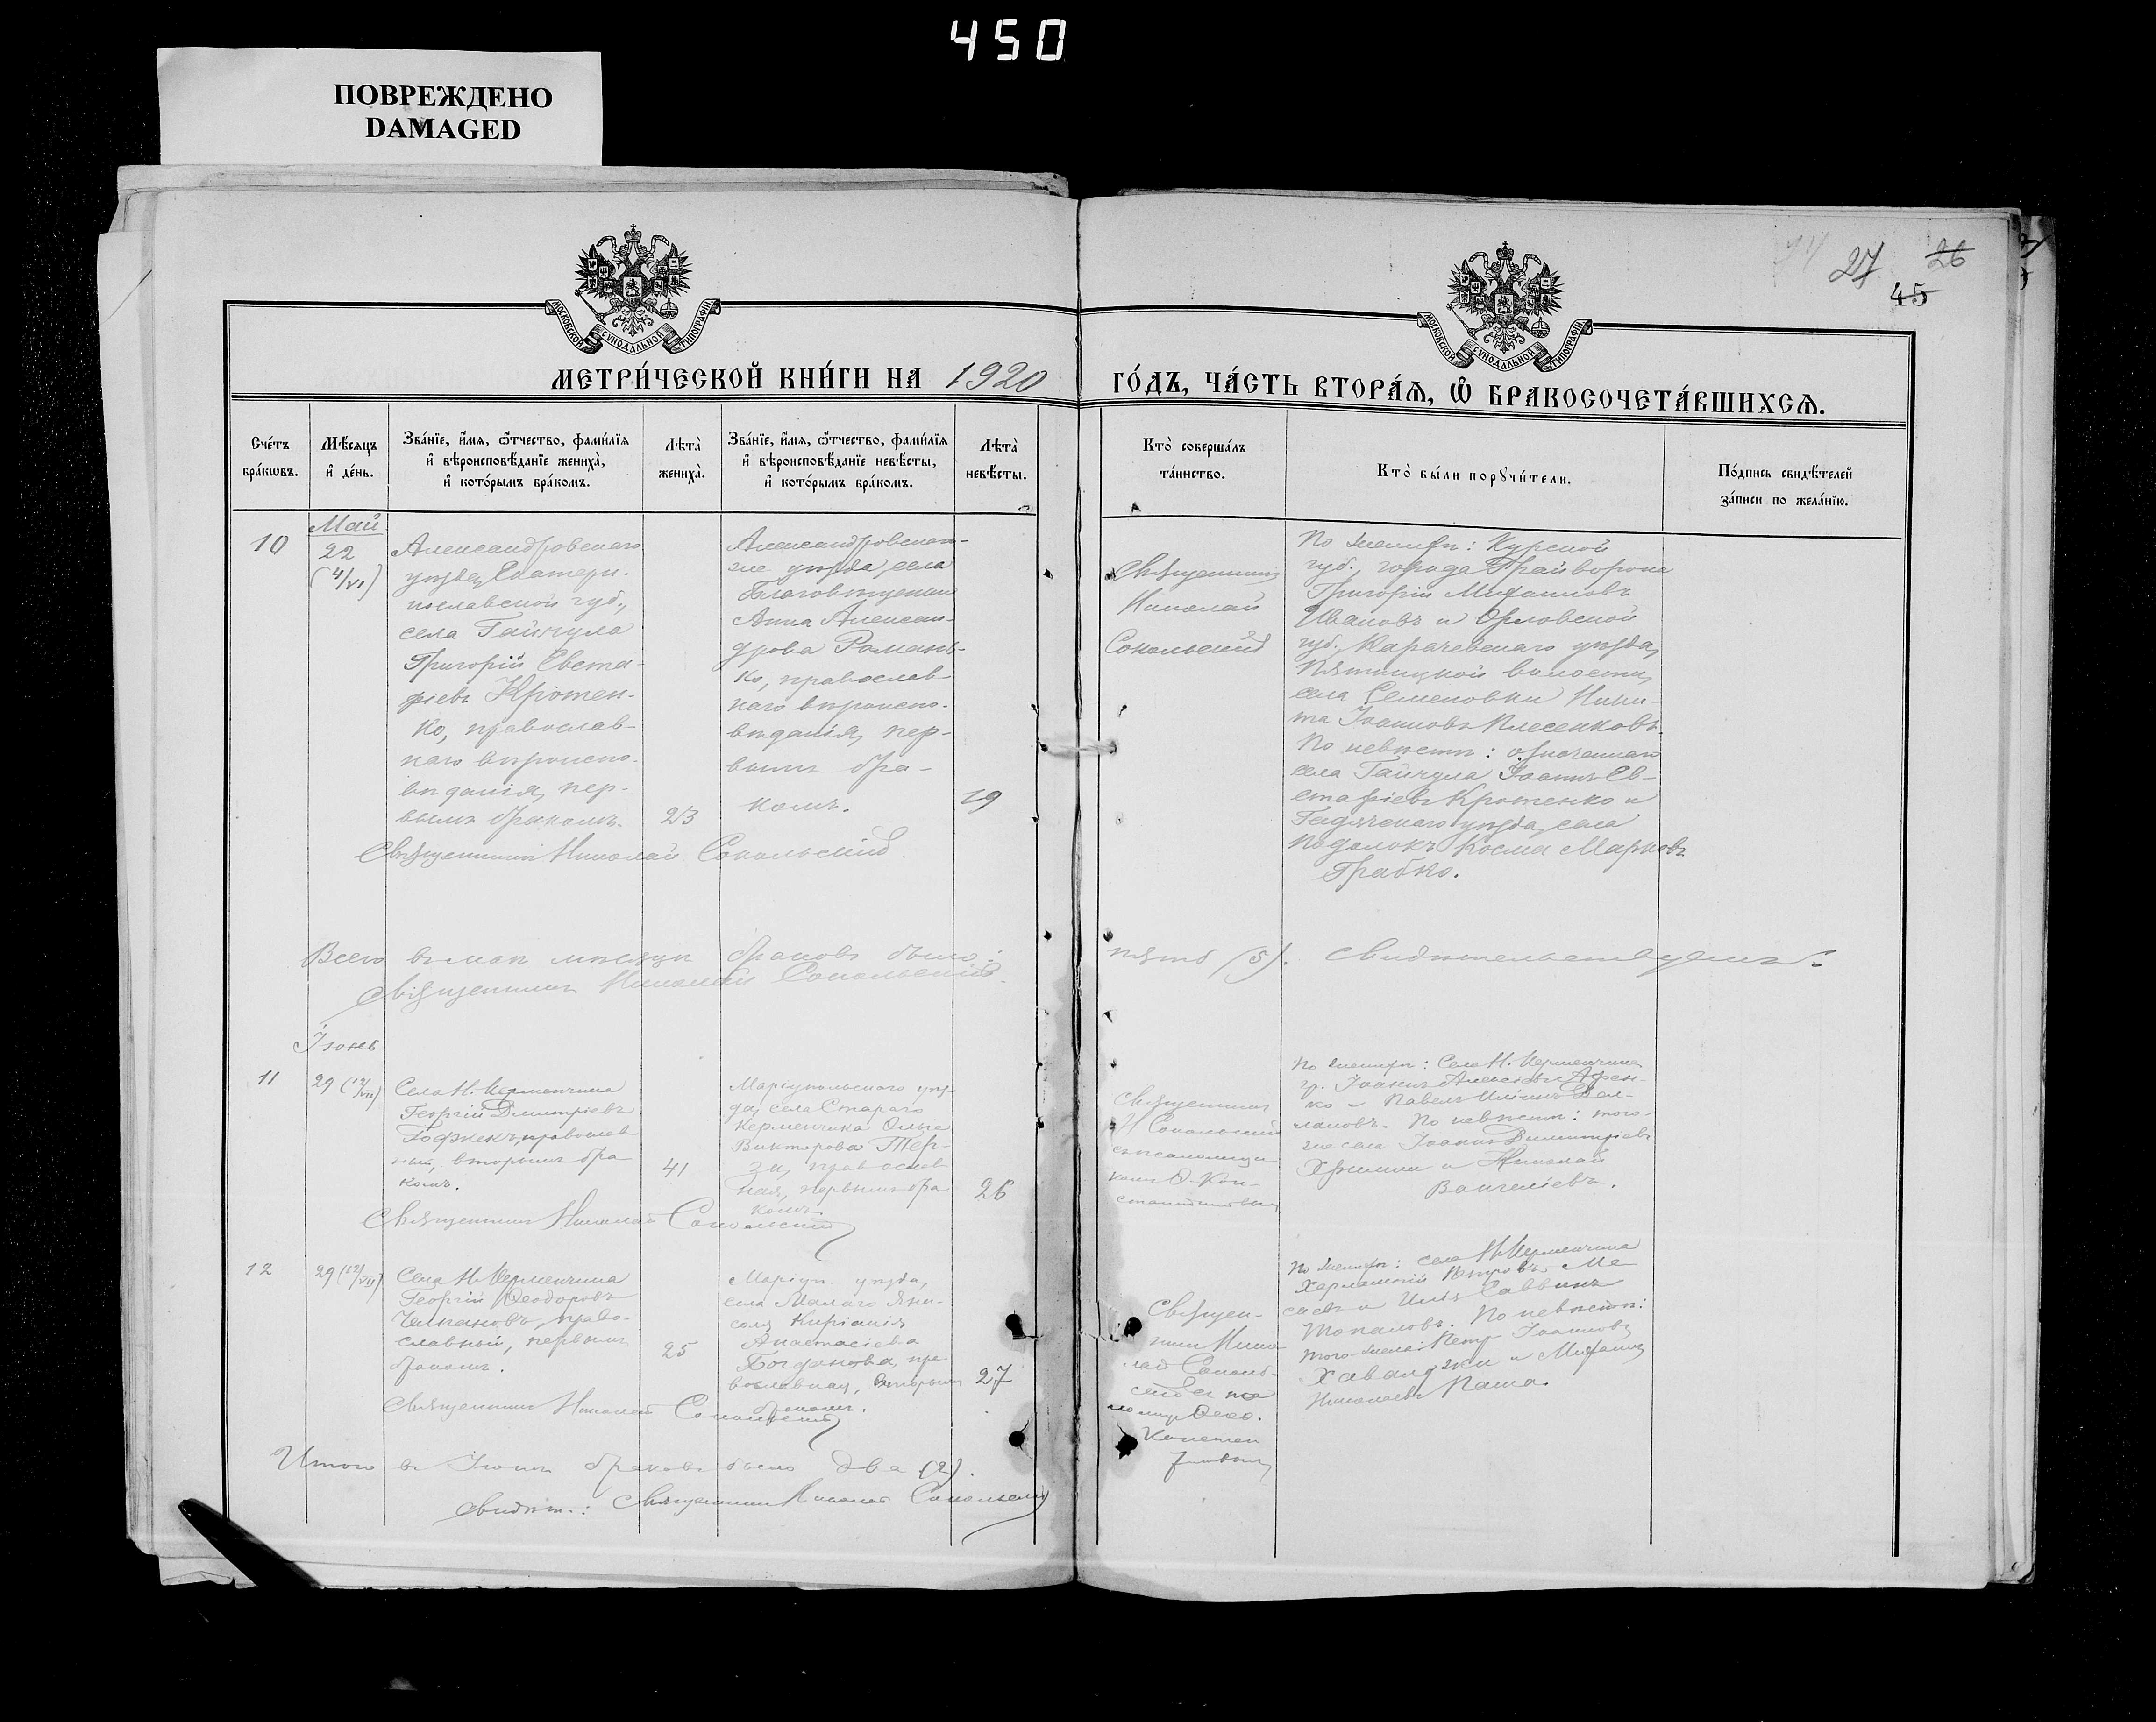 450
ПОВРЕЖДЕНО
DAMAGED
27 26
45
МОСКОВСКОЙ СѴНОДАЛЬНОЙ ТИПОГРАФІИ
МОСКОВСКОЙ СѴНОДАЛЬНОЙ ТИПОГРАФІИ
МЕТРИ́ЧЕСКОЙ КНИ́ГИ НА 1920
ГО́ДЪ, ЧА́СТЬ ВТОРА́Я, Ѡ БРАКОСОЧЕТА́ВШИХСЯ.
Сче́тъ
бра́кѡвъ.
Мѣ́сяцъ
и҆ де́нь.
Зва́нїе, и҆́мя, ѻ҆́тчество, фами́лїя
и҆ вѣроисповѣ́данїе жениха̀,
и҆ кото́рымъ бра́комъ.
Лѣта̀
жениха̀.
Зва́нїе, и҆́мя, ѻ҆́тчество, фами́лїя
и҆ вѣроисповѣ́данїе невѣ́сты,
и҆ кото́рымъ бра́комъ.
Лѣта̀
невѣ́сты.
Кто̀ соверша́лъ
та́инство.
Кто̀ бы́ли порꙋчи́тели.
По́дпись свидѣ́телей
за́писи по жела́нїю.
10
Май
22
(4/VI)
Александровскаго
уѣзда, Екатери-
нославской губ.,
села Гайчула
Григорій Евста-
фіевъ Кротен-
ко, православ-
наго вѣроиспо-
вѣданія, пер-
вымъ бракомъ.
23
Александровскаго-
же уѣзда, села
Благовѣщенки
Анна Алексан-
дрова Романь-
ко, православ-
наго вѣроиспо-
вѣданія, пер-
вымъ бра-
комъ.
19
Священникъ
Николай
Сокольскій
По женихѣ: Курской
губ., города Грайворона
Григорій Михаиловъ
Ивановъ и Орловской
губ., Карачевскаго уѣзда,
волости,
села Семеновки Ники-
та Іоанновъ Плесенковъ.
По невѣстѣ: означеннаго
села Гайчула Іоаннъ Ев-
стафіевъ Кротенко и
Гадячскаго уѣзда, села
Косма Марковъ
Грабко.
Священникъ Николай Сокольскій
Всего въ маѣ мѣсяцѣ браковъ было:
пять (5). Свидѣтельствуемъ:
Священникъ Николай Сокольскій.
Іюнь
11
29 (12/VII)
Села Н.-Керменчика
Георгій Димитріевъ
православ-
ный, вторымъ бра-
комъ.
41
Маріупольскаго уѣз-
да, села Стараго
Керменчика Ольга
Викторова Тер-
зи, православ-
ная, первымъ бра-
комъ.
26
Священникъ
Н. Сокольскій
съ псаломщи-
комъ Ѳ. Кон-
стантиновымъ
По женихѣ: Села Н.-Керменчика
гр. Іоаннъ
и Павелъ Иліинъ
По невѣстѣ: того-
же села Іоаннъ Димитріевъ
и Николай
Священникъ Николай Сокольскій
12
29 (12/VII)
Села Н.-Керменчика
Георгій Ѳеодоровъ
право-
славный, первымъ
бракомъ.
25
Маріуп. уѣзда,
села Малаго Яни-
соля Киріакія
Анастасіева
Богданова, пра-
вославная, вторымъ
бракомъ.
27
Священ-
никъ Нико-
лай Соколь-
скій
По женихѣ: села Н.-Керменчика
Харлампій Петровъ
и Илія Саввинъ
Топаловъ. По невѣстѣ:
того-же села: Петръ Іоанновъ
Хаваджи и Михаилъ
Николаевъ Паша.
Священникъ Николай Сокольскій
Итого въ Іюнѣ браковъ было два (2).
Свидѣт.: Священникъ Николай Сокольскій